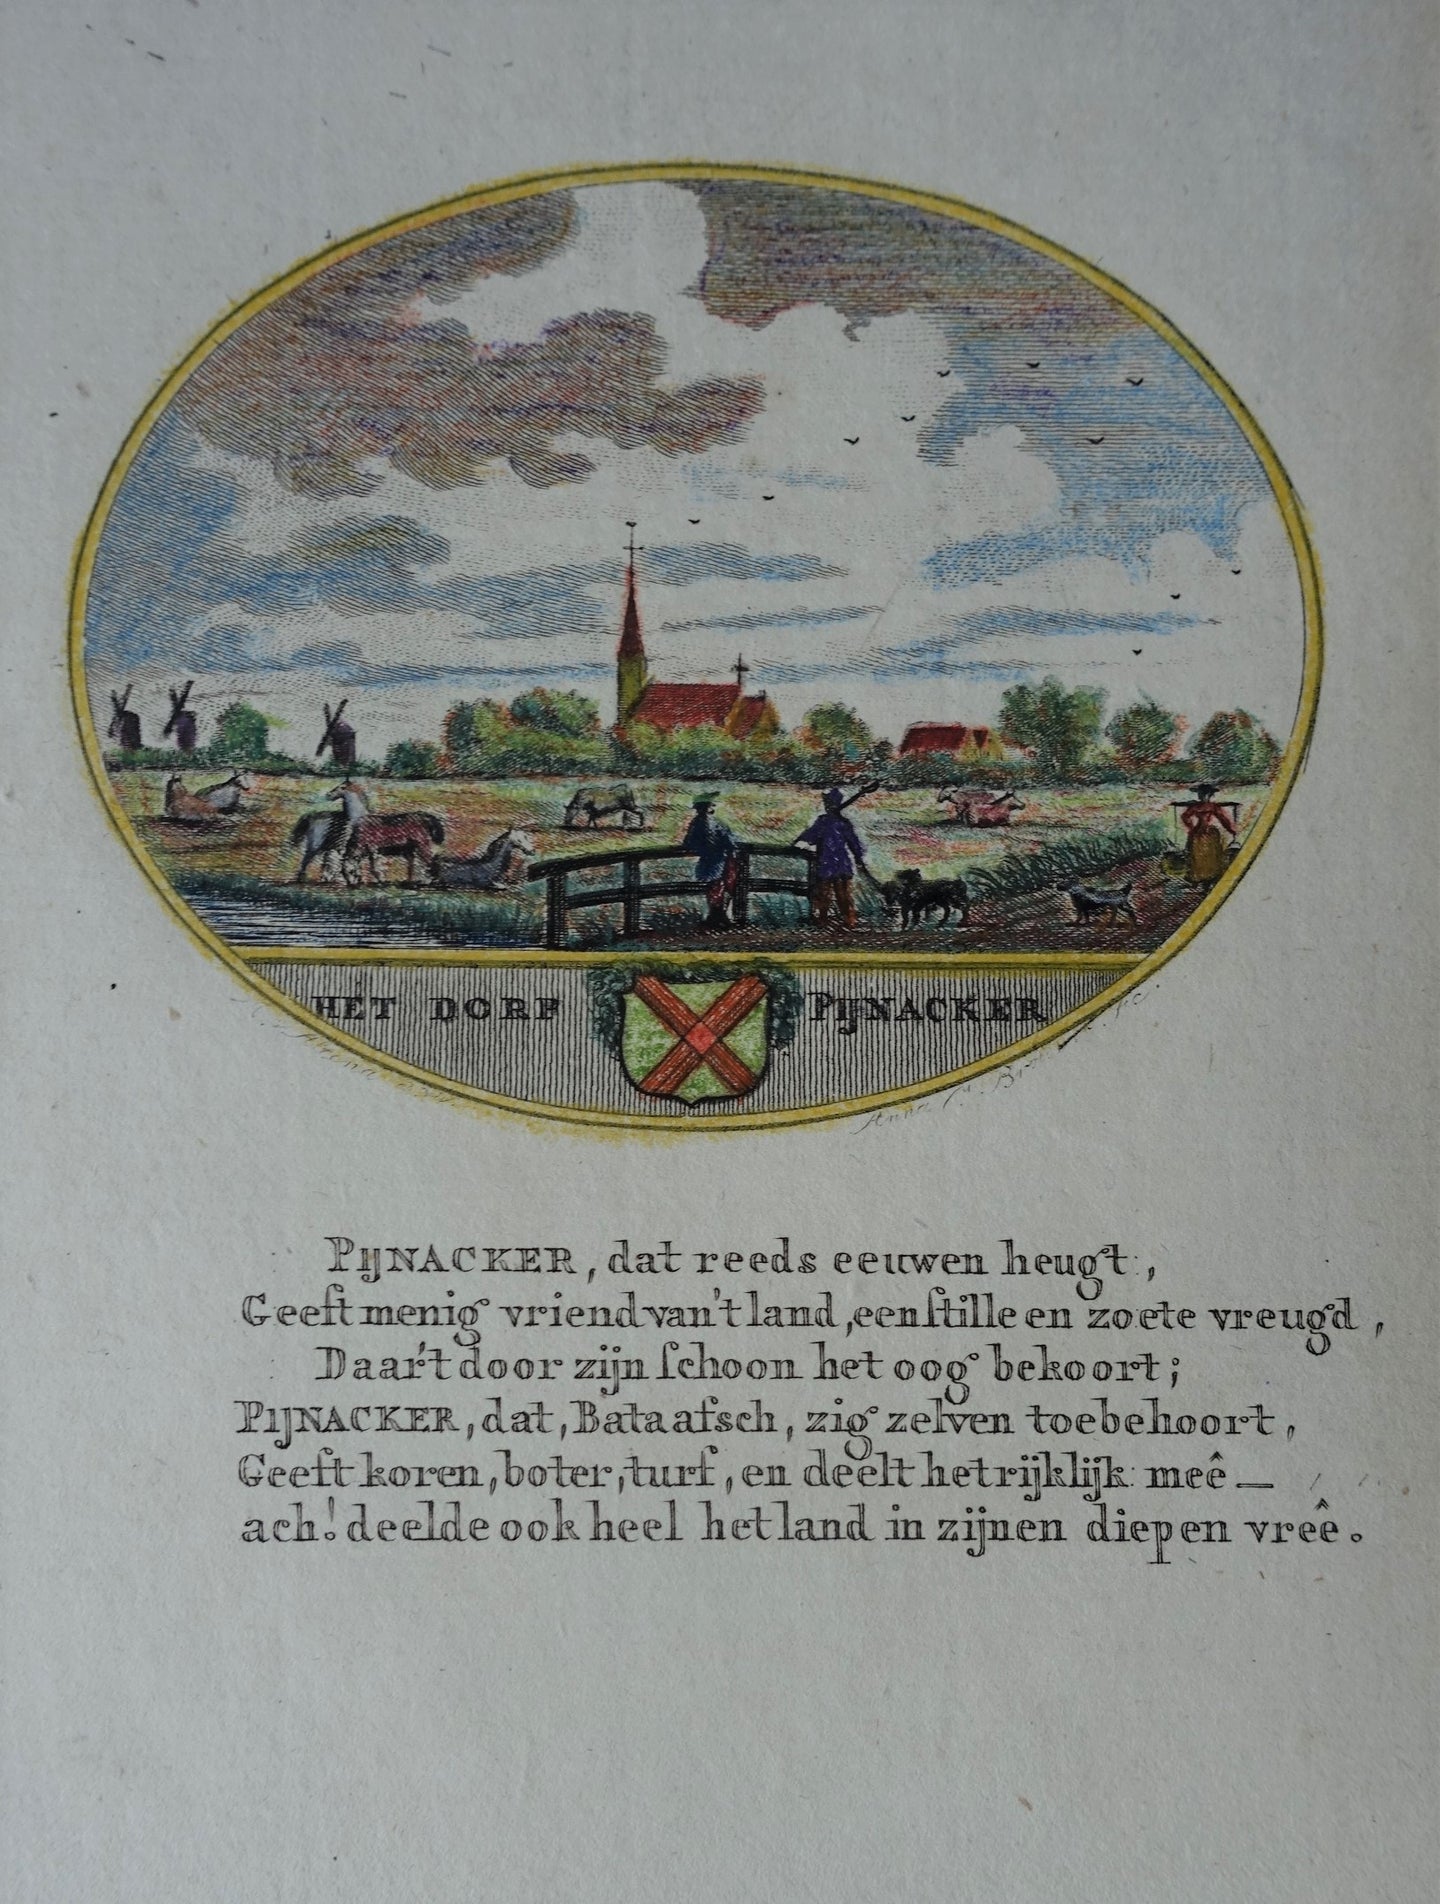 HET DORP PIJNACKER
Anna C.
PIJNACKER, dat reeds eeuwen heugt,
Geeft menig vriend van't land, een ſtille en zoete vreugd,
Daar't door zijn ſchoon het oog bekoort;
PIJNACKER, dat, Bataafsch, zig zelven toebehoort,
Geeft koren, boter, turf, en deelt het rijklijk meê —
ach! deelde ook heel het land in zijnen diepen vreê.